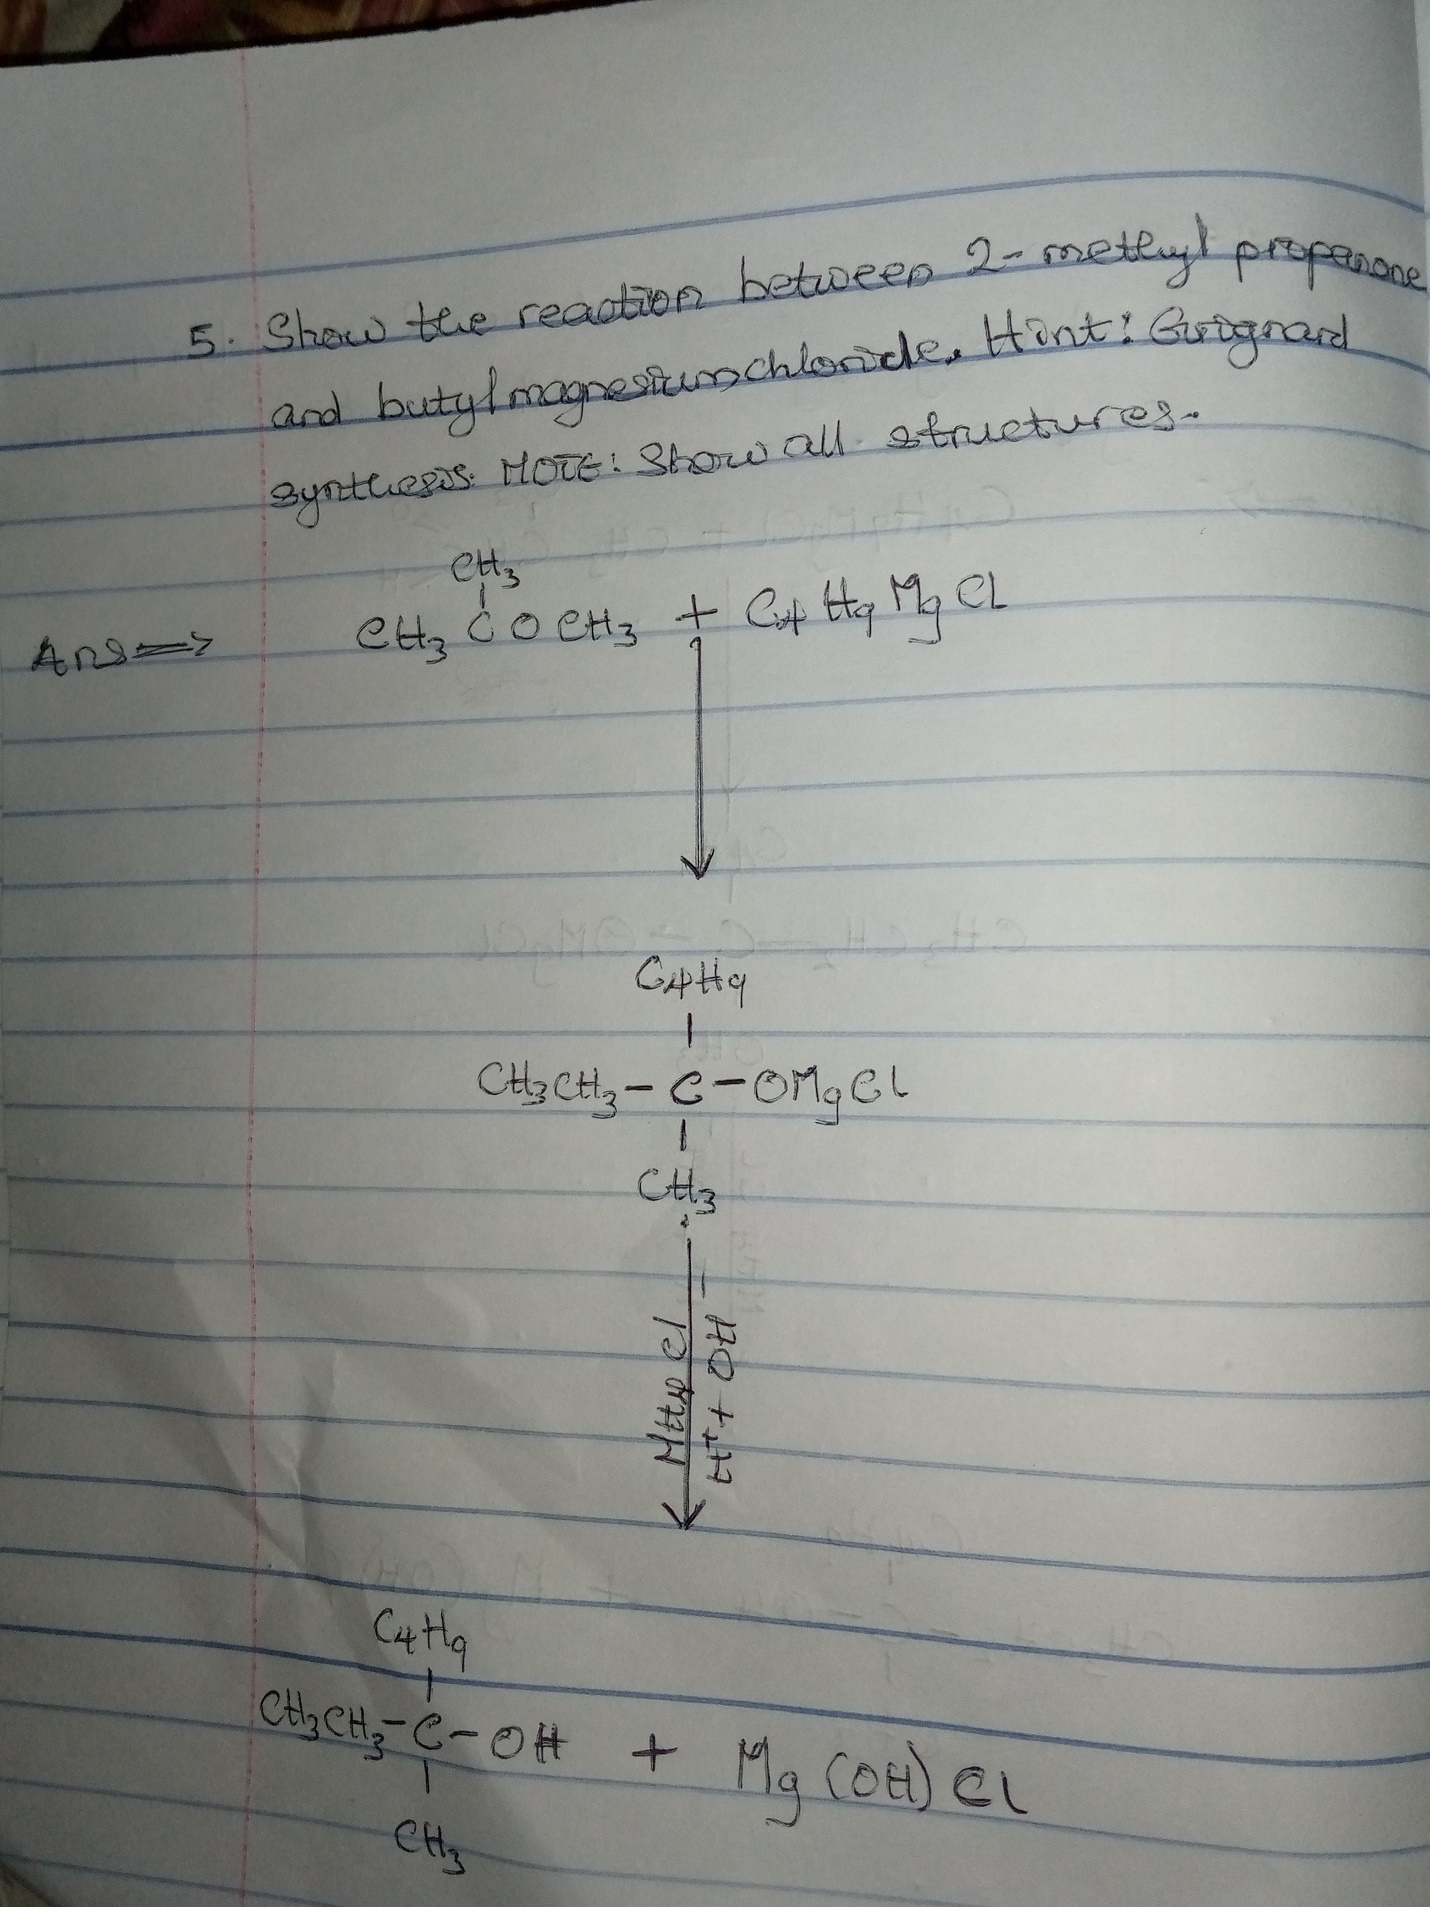 5. Show the reaction between 2-methyl propanone
and butylmagnesiumchloride. Hint: Grignard
synthesis. NOTE: Show all structures.
CH3
Ans => CH3 C O CH3 + C4H9MgCl
C4H9
CH3CH3-C-OMgCl
CH3
NH4Cl
H+ + OH-
C4H9
CH3CH3-C-OH + Mg(OH)Cl
CH3